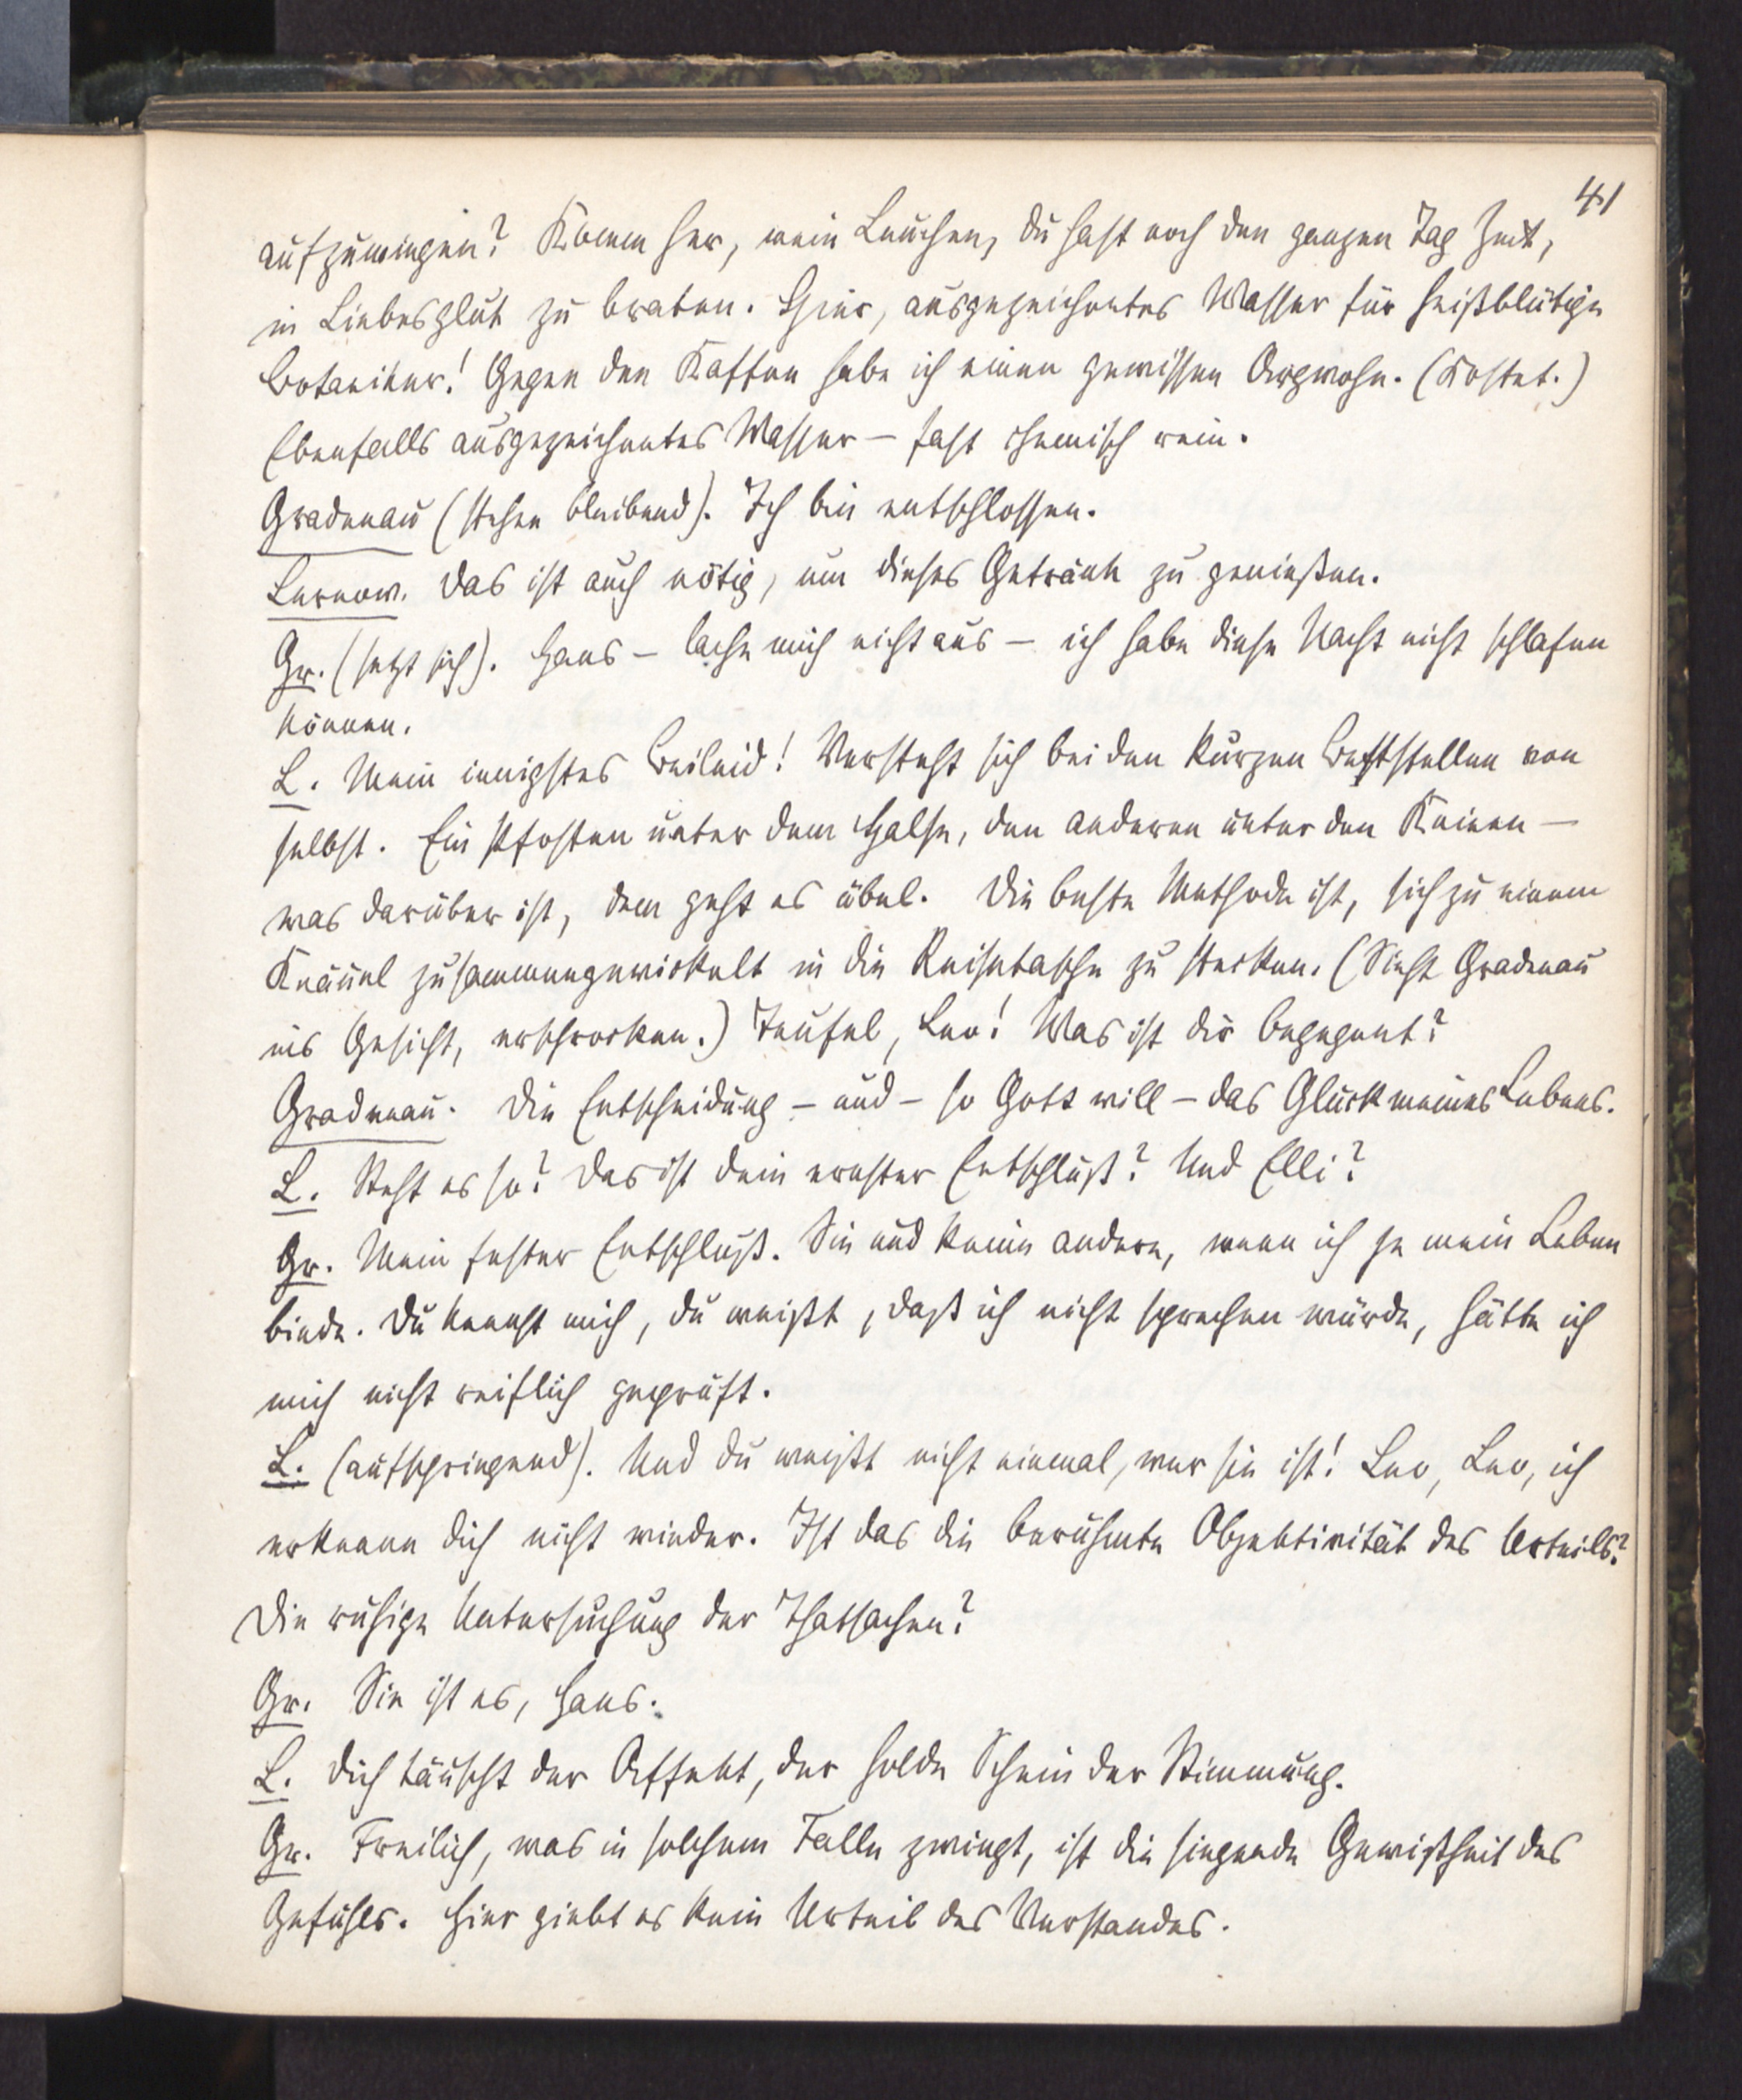 41
aufzuwiegen? Komm her, mein Leuchen, du hast noch den ganzen Tag Zeit,
in Liebesglut zu braten. Hier, ausgezeichnetes Wasser für heißblütige
Botaniker! Gegen den Kaffee habe ich einen gewissen Argwohn. (Kostet.)
Ebenfalls ausgezeichnetes Wasser – fast chemisch rein.
Gradenau (stehen bleibend). Ich bin entschlossen.
Lernow. Das ist auch nötig, um dieses Getränk zu genießen.
Gr. (setzt sich). Hans – lache mich nicht aus – ich habe diese Nacht nicht schlafen
können.
L. Mein innigstes Beileid! Versteht sich bei den kurzen Bettstellen von
selbst. Ein Pfosten unter dem Halse, den anderen unter den Knieen –
was darüber ist, dem geht es übel. Die beste Methode ist, sich zu einem
Knäuel zusammengewickelt in die Reisetasche zu stecken. (Sieht Gradenau
ins Gesicht, erschrocken.) Teufel, Leo! Was ist dir begegnet?
Gradenau. Die Entscheidung – und – so Gott will – das Glück meines Lebens.
L. Steht es so? Das ist dein ernster Entschluß? Und Elli?
Gr. Mein fester Entschluß. Sie und keine andere, wenn ich je mein Leben
binde. Du kennst mich, du weißt, daß ich nicht sprechen würde, hätte ich
mich nicht reiflich geprüft.
L. (aufspringend). Und du weißt nicht einmal, wer sie ist! Leo, Leo, ich
erkenne dich nicht wieder. Ist das die berühmte Objektivität des Urteils?
Die ruhige Untersuchung der Thatsachen?
Gr. Sie ist es, Hans.
L. Dich täuscht der Affekt, der holde Schein der Stimmung.
Gr. Freilich, was in solchem Falle zwingt, ist die siegende Gewißheit des
Gefühls. Hier giebt es kein Urteil des Verstandes.